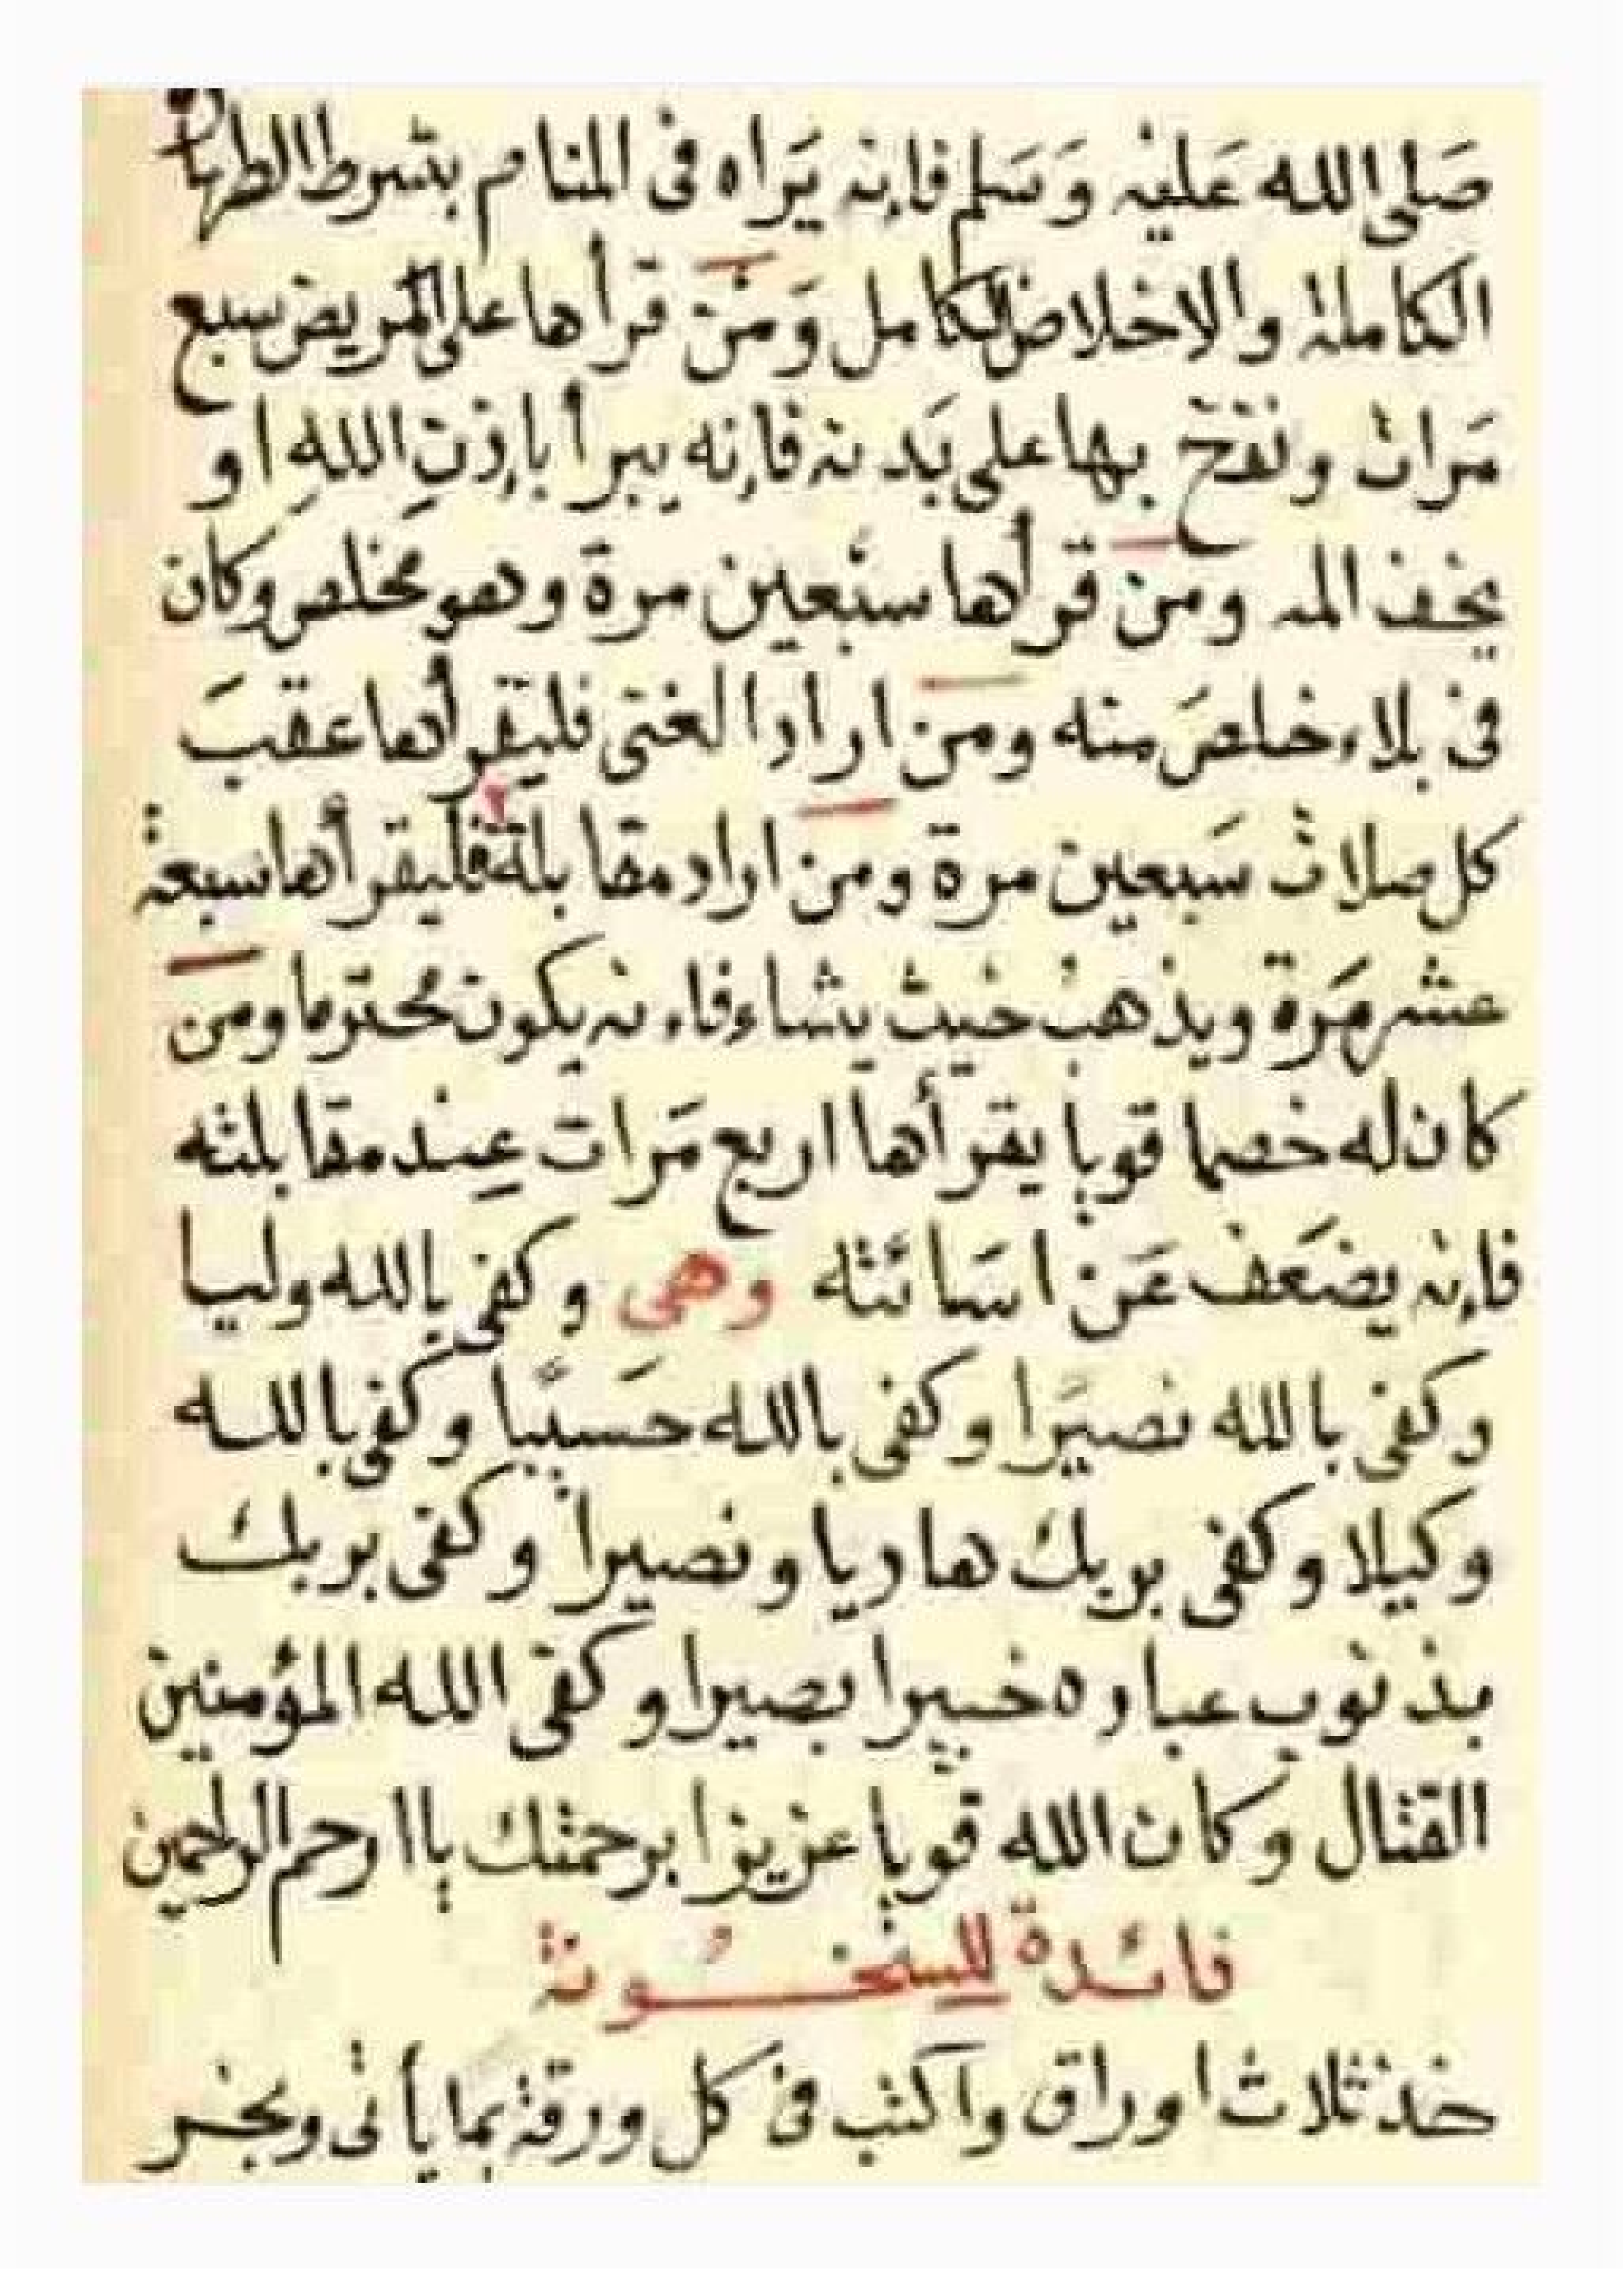 صَلى الله عَليْه وَسَلم فإنه يَراه فى المنام بشرط الطهارة
الكاملة والاخلاص الكامل وَمَنْ قرأها على المريض سبع
مَرات ونفخ بها على بَدنه فإنه يبرأ باذنِ اللهِ او
يخف المه ومن قرأها سبْعين مرة وهو مخلص وكان
فى بلاء خلصَ منه ومن اراد الغنى فليقرأها عقبَ
كل صلاة سَبعين مرة ومن اراد مقابلة فليقرأها سبعة
عشر مَرة ويذهبُ حيث يشاء فاءنه يكون محترما ومن
كان له خصما قويا يقرأها اربع مَرات عِند مقابلته
فإنه يضعَف عَن اسَائته وهى وكفى بالله وليا
وكفى بالله نصيَرا وكفى بالله حسَيبًا وكفى بالله
وكيلا وكفى بربك هاديا ونصيرا وكفى بربك
بذنوب عباده خبيرا بصيرا وكفى الله المؤمنين
القتال وكان الله قويا عزيزا برحمتك يا ارحم الراحمين
فائدة للسخُونة
خذ ثلاث اوراق وآكتب فى كل ورقة بما يأتى وبخر